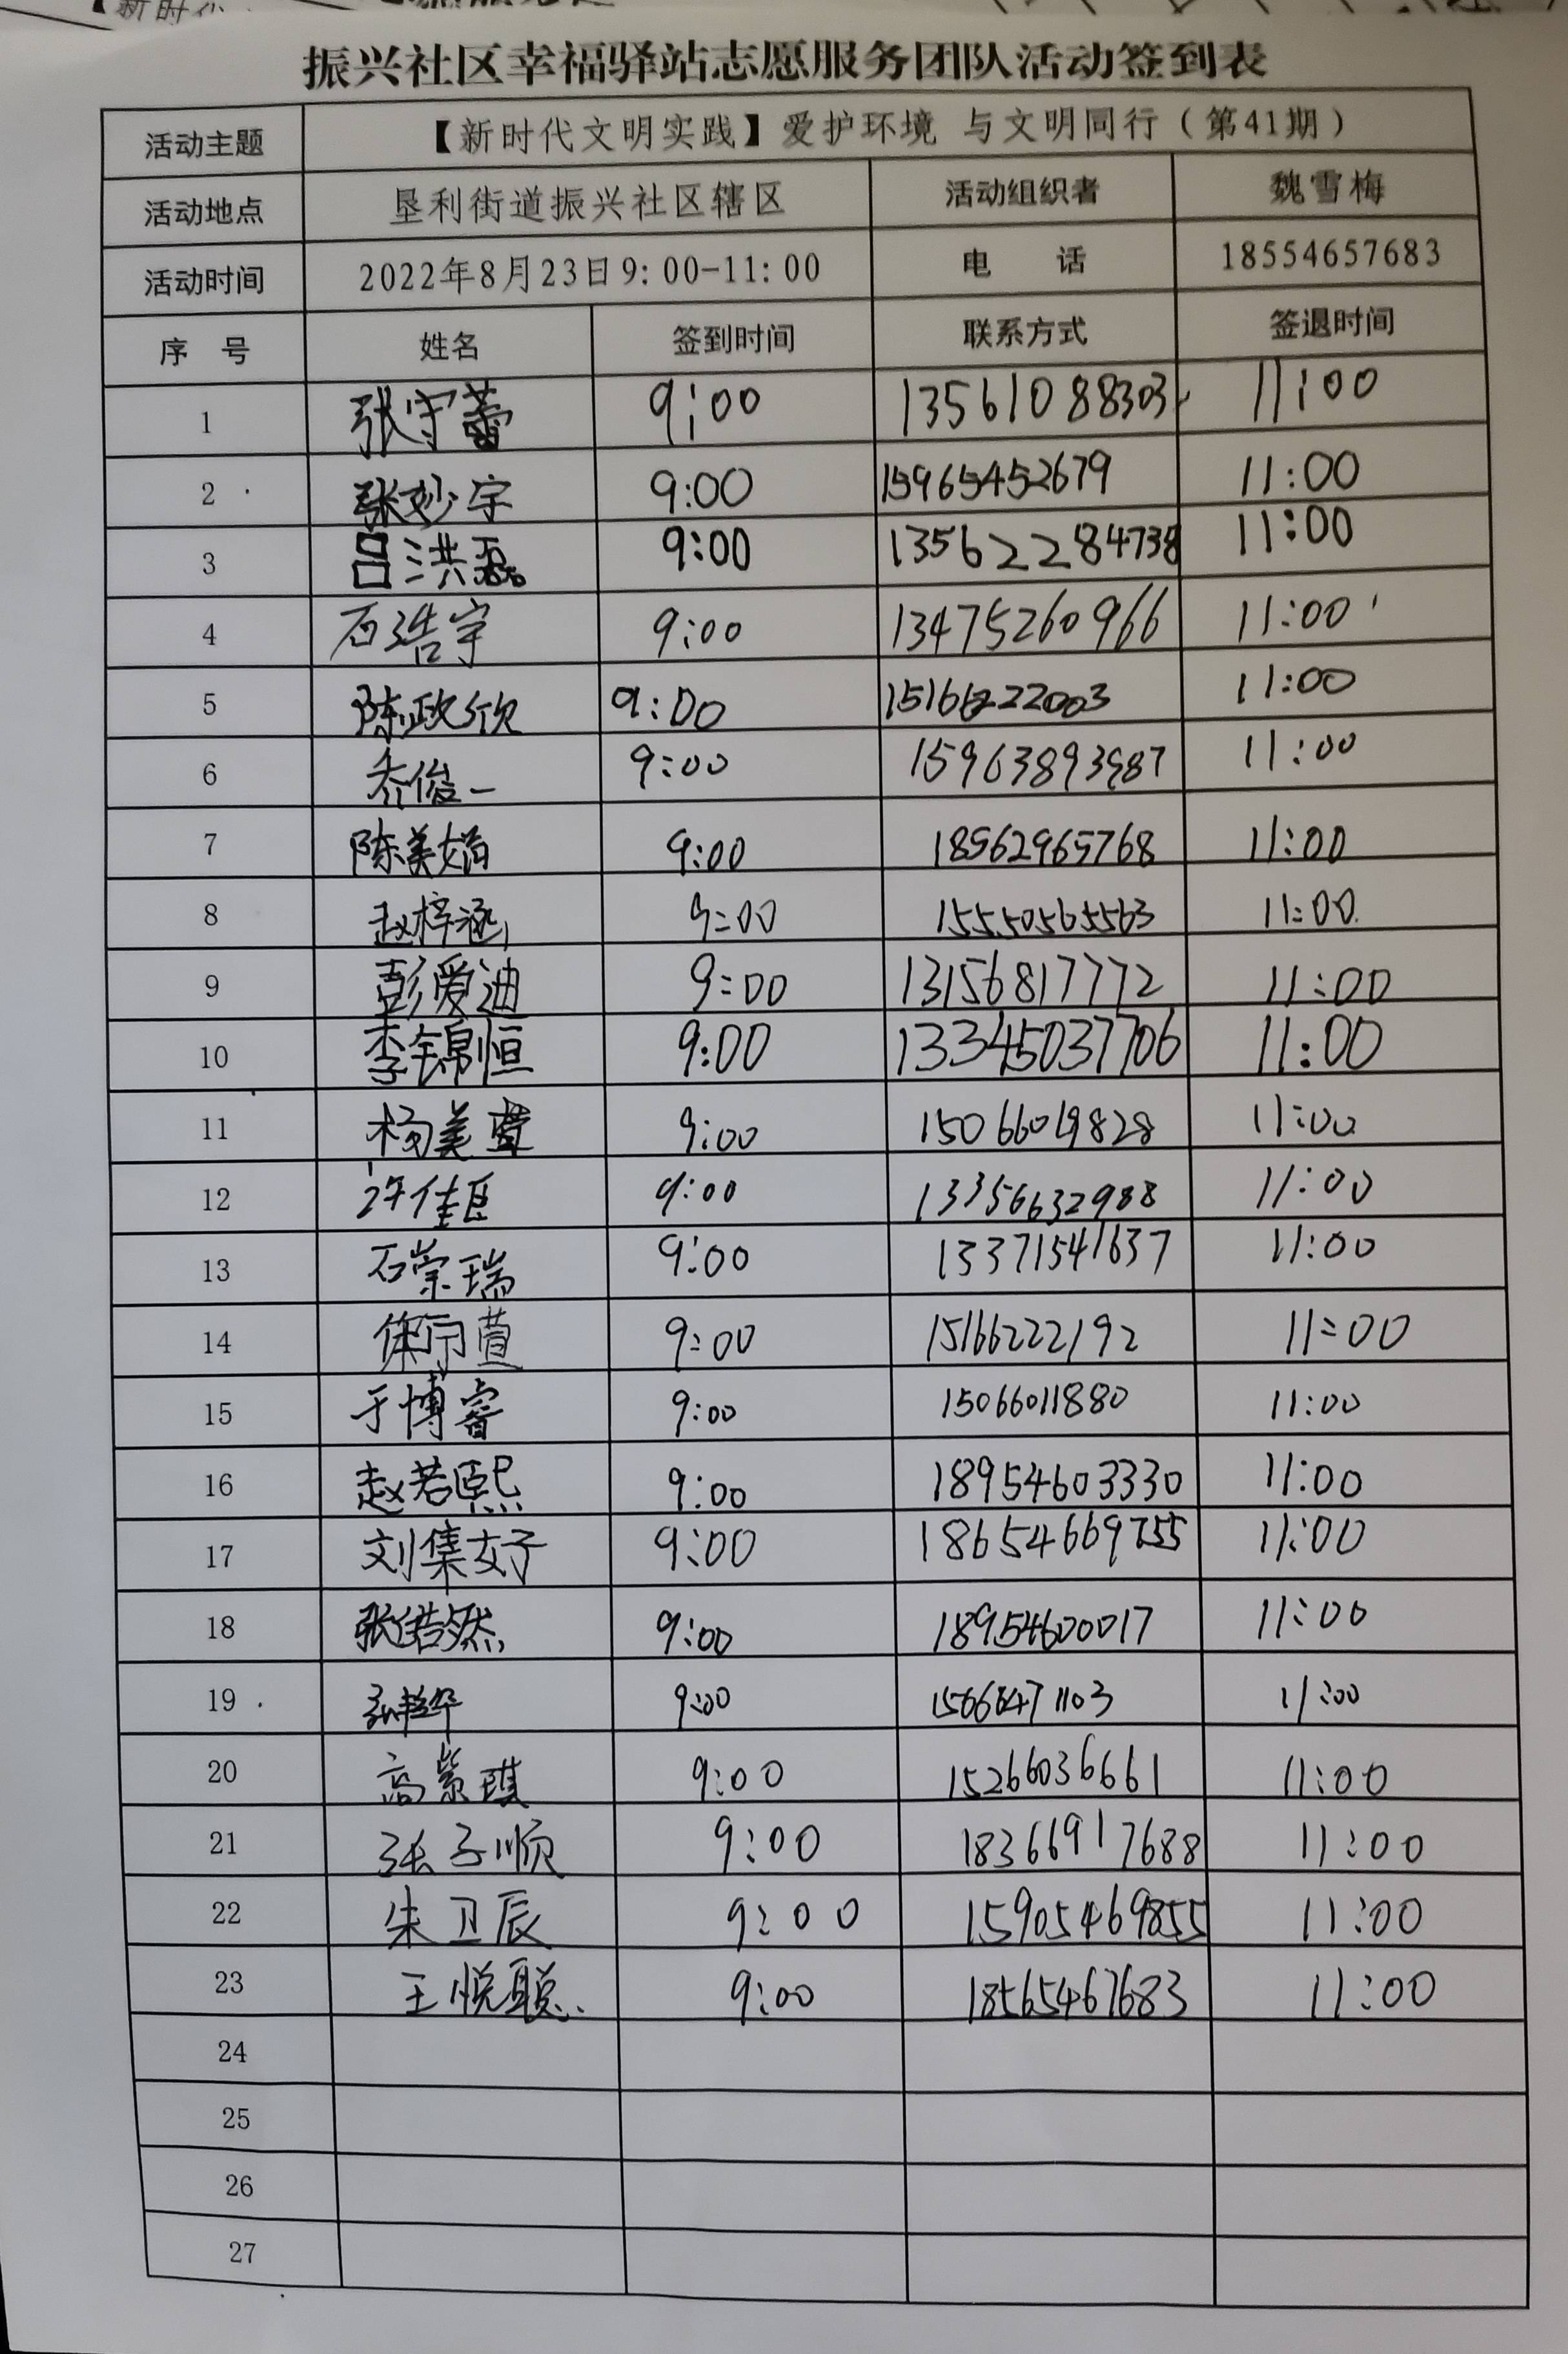 振兴社区幸福驿站志愿服务团队活动签到表
活动主题 【新时代文明实践】爱护环境 与文明同行（第41期）
活动地点 垦利街道振兴社区辖区 活动组织者 魏雪梅
活动时间 2022年8月23日9:00-11:00 电 话 18554657683
序 号 姓名 签到时间 联系方式 签退时间
1 张宇蕾 9:00 13561088303 11:00
2 张妙宇 9:00 15965452679 11:00
3 吕洪磊 9:00 13562284738 11:00
4 石浩宇 9:00 13475260966 11:00
5 陈政欣 9:00 15166222003 11:00
6 乔俊一 9:00 15963893987 11:00
7 陈美娟 9:00 18562965768 11:00
8 赵梓涵 9:00 15550565563 11:00
9 彭爱迪 9:00 13156817772 11:00
10 李锦恒 9:00 13345037706 11:00
11 杨美萱 9:00 15066019828 11:00
12 许佳臣 9:00 13356632988 11:00
13 石崇瑞 9:00 13371541637 11:00
14 徐宁萱 9:00 15166222192 11:00
15 于博睿 9:00 15066011880 11:00
16 赵若熙 9:00 18954603330 11:00
17 刘集好 9:00 18654669755 11:00
18 张皓然 9:00 18954600017 11:00
19 9:00 11:00
20 高紫琪 9:00 15266036661 11:00
21 张子顺 9:00 18366917688 11:00
22 朱卫辰 9:00 15905469855 11:00
23 王悦聪 9:00 18565467683 11:00
24
25
26
27